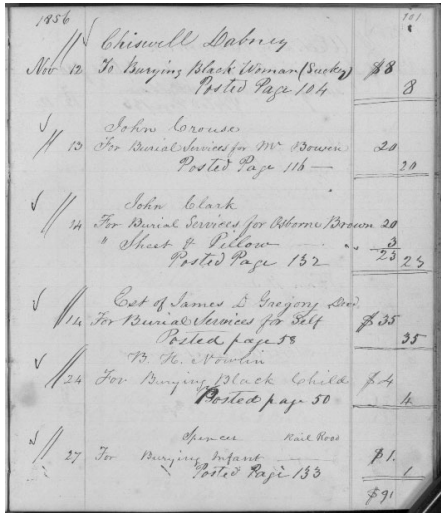 1856 101
Chiswell Dabney
Nov 12 To Burying Black Woman (Sucky) $8
Posted Page 104 8
John Crouse
13 For Burial Services for Mr Bowen 20
Posted Page 116 — 20
John Clark
14 For Burial Services for Osborne Brown 20
" Sheet & Pillow " 3
23
Posted Page 132 23
Est of James D Gregory Decd
14 For Burial Services for Self $35
Posted page 58 35
B. H. Nowlin
24 For Burying Black Child $4
Posted page 50 4
Spencer Rail Road
27 For Burying Infant $1.
" Posted Page 133 1
$91